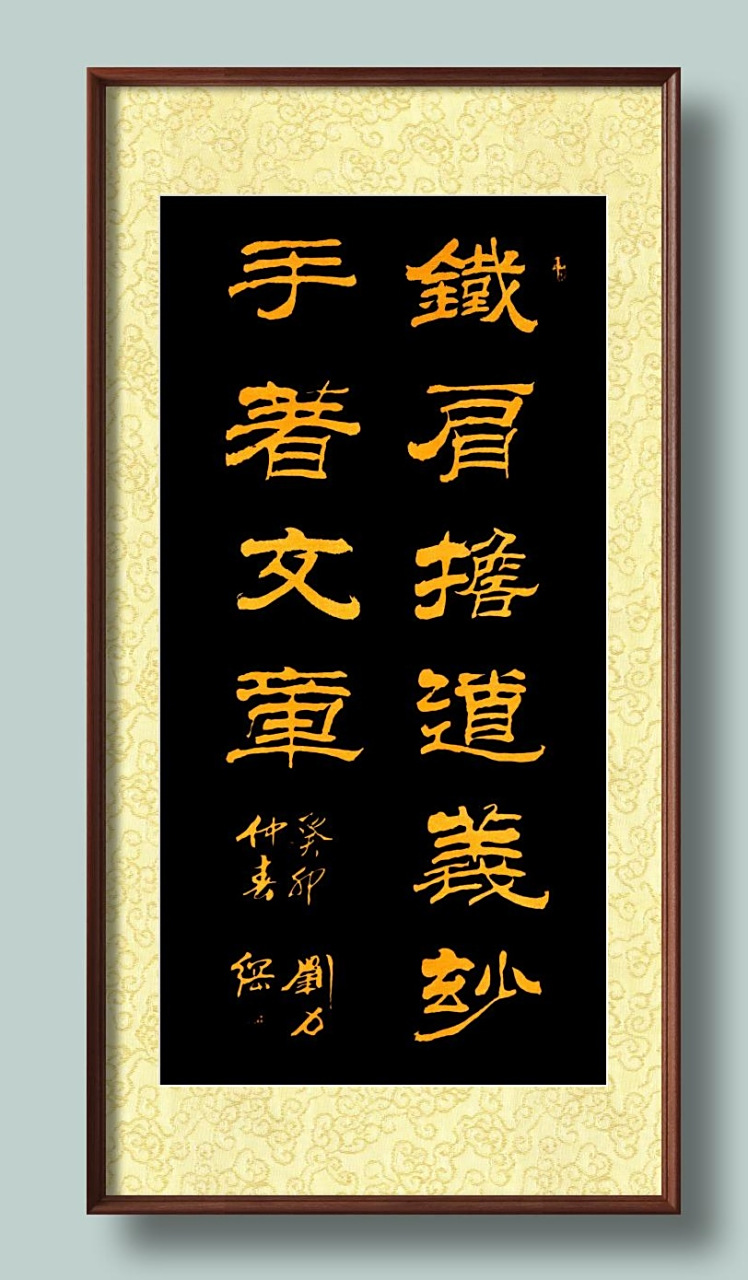 鐵肩擔道義玅
手著文章
癸卯
仲春
劉力